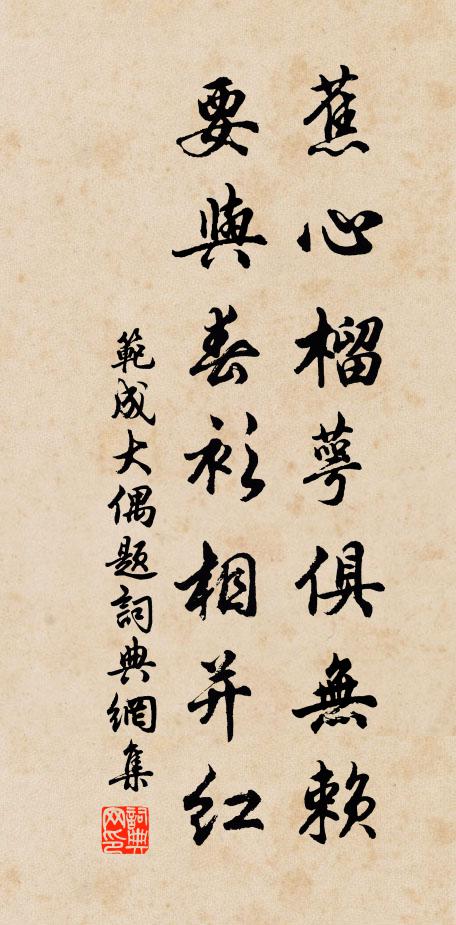 蕉心榴萼俱無賴
要與春衫相并紅
範成大偶題詞典網集
詞典網印